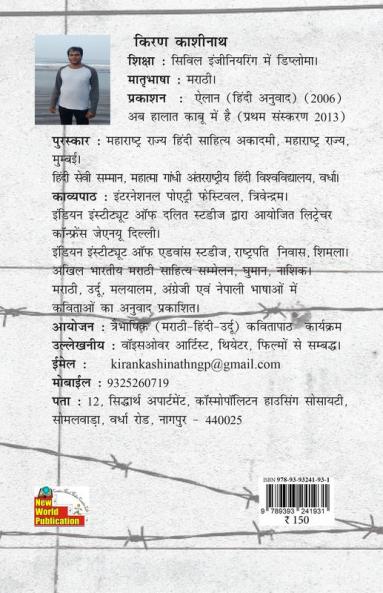 किरण काशीनाथ
शिक्षा : सिविल इंजीनियरिंग में डिप्लोमा।
मातृभाषा : मराठी।
प्रकाशन : ऐलान (हिंदी अनुवाद) (2006)
अब हालात काबू में है (प्रथम संस्करण 2013)
पुरस्कार : महाराष्ट्र राज्य हिंदी साहित्य अकादमी, महाराष्ट्र राज्य,
मुम्बई।
हिंदी सेवी सम्मान, महात्मा गांधी अंतराष्ट्रीय हिंदी विश्वविद्यालय, वर्धा।
काव्यपाठ : इंटरनेशनल पोएट्री फेस्टिवल, त्रिवेन्द्रम।
इंडियन इंस्टीट्यूट ऑफ दलित स्टडीज द्वारा आयोजित लिट्रेचर
कॉन्फ्रेंस जेएनयू दिल्ली।
इंडियन इंस्टीट्यूट ऑफ एडवांस स्टडीज, राष्ट्रपति निवास, शिमला।
अखिल भारतीय मराठी साहित्य सम्मेलन, घुमान, नाशिक।
मराठी, उर्दू, मलयालम, अंग्रेजी एवं नेपाली भाषाओं में
कविताओं का अनुवाद प्रकाशित।
आयोजन : त्रैभाषिक (मराठी-हिंदी-उर्दू) कवितापाठ कार्यक्रम
उल्लेखनीय : वॉइसओवर आर्टिस्ट, थियेटर, फिल्मों से सम्बद्ध।
ईमेल : kirankashinathngp@gmail.com
मोबाईल : 9325260719
पता : 12, सिद्धार्थ अपार्टमेंट, कॉस्मोपॉलिटन हाउसिंग सोसायटी,
सोमलवाड़ा, वर्धा रोड, नागपुर - 440025
New
World
Publication
ISBN 978-93-93241-93-1
9 789393 241931
₹ 150